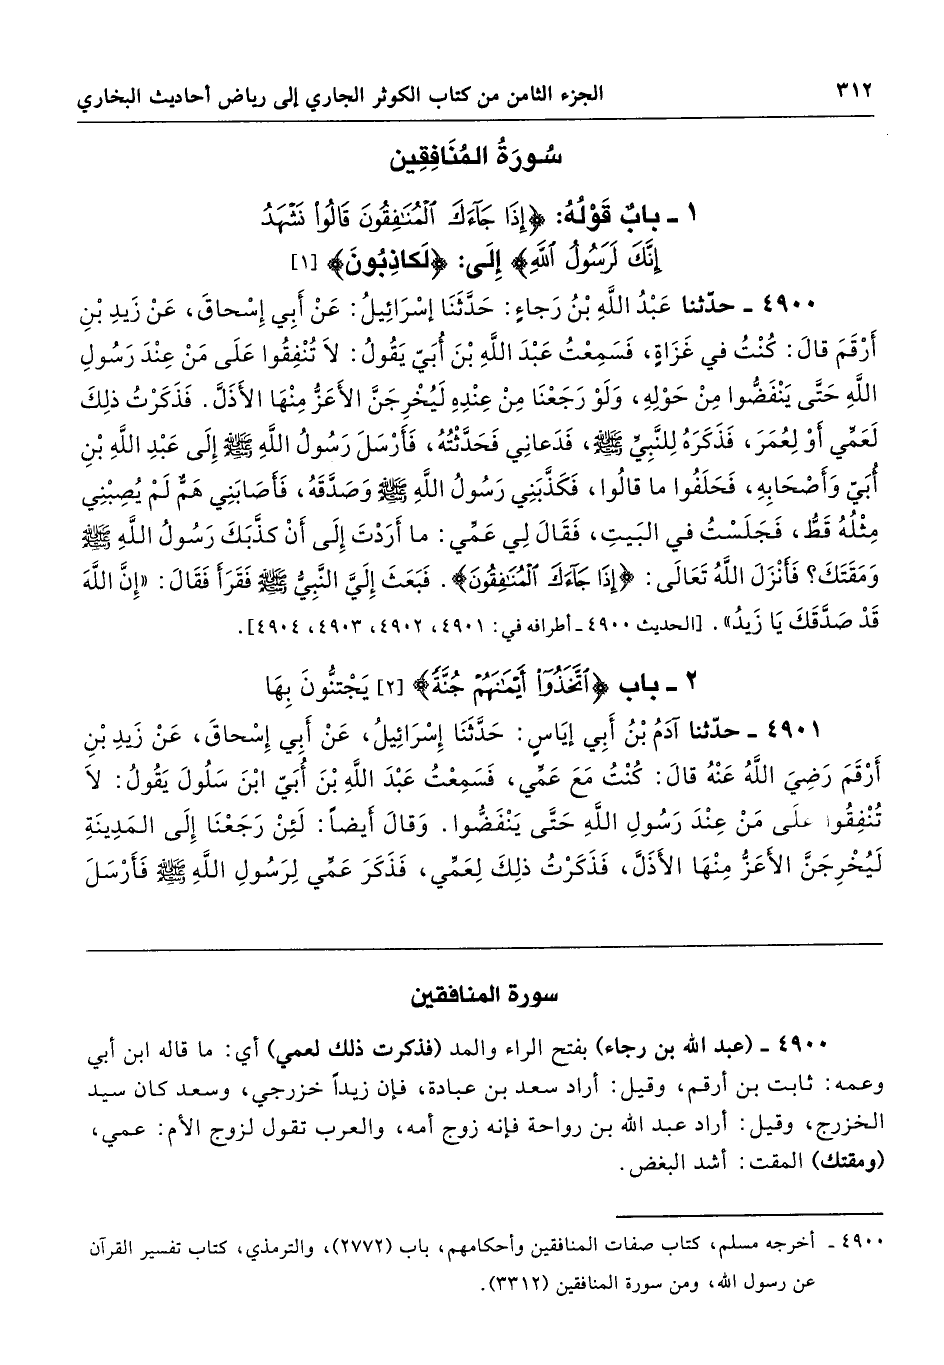 ٣١٢ الجزء الثامن من كتاب الكوثر الجاري إلى رياض أحاديث البخاري
سُورَةُ المُنَافِقِين
١ ـ بابٌ قَوْلُهُ: ﴿إِذَا جَآءَكَ ٱلْمُنَٰفِقُونَ قَالُوا۟ نَشْهَدُ
إِنَّكَ لَرَسُولُ ٱللَّهِ﴾ إِلَى: ﴿لَكاذِبُونَ﴾ [١]
٤٩٠٠ ـ حدّثنا عَبْدُ اللَّهِ بْنُ رَجاءٍ: حَدَّثَنَا إِسْرَائِيلُ: عَنْ أَبِي إِسْحاقَ، عَنْ زَيدِ بْنِ
أَرْقَمَ قالَ: كُنْتُ في غَزَاةٍ، فَسَمِعْتُ عَبْدَ اللَّهِ بْنَ أُبَيّ يَقُولُ: لاَ تُنْفِقُوا عَلَى مَنْ عِنْدَ رَسُولِ
اللَّهِ حَتَّى يَنْفَضُّوا مِنْ حَوْلِهِ، وَلَوْ رَجَعْنَا مِنْ عِنْدِهِ لَيُخْرِجَنَّ الأَعَزُّ مِنْهَا الأَذَلَّ. فَذَكَرْتُ ذلِكَ
لَعَمِّي أَوْ لِعُمَرَ، فَذَكَرَهُ لِلنَّبِيِّ ﷺ، فَدَعانِي فَحَدَّثْتُهُ، فَأَرْسَلَ رَسُولُ اللَّهِ ﷺ إِلَى عَبْدِ اللَّهِ بْنِ
أُبَيّ وَأَصْحَابِهِ، فَحَلَفُوا ما قالُوا، فَكَذَّبَنِي رَسُولُ اللَّهِ ﷺ وَصَدَّقَهُ، فَأَصَابَنِي هَمٌّ لَمْ يُصِبْنِي
مِثْلُهُ قَطُّ، فَجَلَسْتُ في البَيتِ، فَقَالَ لِي عَمِّي: ما أَرَدْتَ إِلَى أَنْ كذَّبَكَ رَسُولُ اللَّهِ ﷺ
وَمَقَتَكَ؟ فَأَنْزَلَ اللَّهُ تَعَالَى: ﴿إِذَا جَآءَكَ ٱلْمُنَٰفِقُونَ﴾. فَبَعَثَ إِلَيَّ النَّبِيُّ ﷺ فَقَرَأَ فَقَالَ: «إِنَّ اللَّهَ
قَدْ صَدَّقَكَ يَا زَيدُ». [الحديث ٤٩٠٠ ـ أطرافه في: ٤٩٠١، ٤٩٠٢، ٤٩٠٣، ٤٩٠٤].
٢ ـ باب ﴿ٱتَّخَذُوٓا۟ أَيْمَٰنَهُمْ جُنَّةً﴾ [٢] يَجْتنُّونَ بِهَا
٤٩٠١ ـ حدّثنا آدَمُ بْنُ أَبِي إِيَاسٍ: حَدَّثَنَا إِسْرَائِيلُ، عَنْ أَبِي إِسْحاقَ، عَنْ زَيدِ بْنِ
أَرْقَمَ رَضِيَ اللَّهُ عَنْهُ قالَ: كُنْتُ مَعَ عَمِّي، فَسَمِعْتُ عَبْدَ اللَّهِ بْنَ أُبَيّ ابْنَ سَلُولَ يَقُولُ: لاَ
تُنْفِقُوا عَلَى مَنْ عِنْدَ رَسُولِ اللَّهِ حَتَّى يَنْفَضُّوا. وَقالَ أَيضاً: لَئِنْ رَجَعْنَا إِلَى المَدِينَةِ
لَيُخْرِجَنَّ الأَعَزُّ مِنْهَا الأَذَلَّ، فَذَكَرْتُ ذلِكَ لِعَمِّي، فَذَكَرَ عَمِّي لِرَسُولِ اللَّهِ ﷺ فَأَرْسَلَ
سورة المنافقين
٤٩٠٠ ـ (عبد الله بن رجاء) بفتح الراء والمد (فذكرت ذلك لعمي) أي: ما قاله ابن أبي
وعمه: ثابت بن أرقم، وقيل: أراد سعد بن عبادة، فإن زيداً خزرجي، وسعد كان سيد
الخزرج، وقيل: أراد عبد الله بن رواحة فإنه زوج أمه، والعرب تقول لزوج الأم: عمي،
(ومقتك) المقت: أشد البغض.
٤٩٠٠ ـ أخرجه مسلم، كتاب صفات المنافقين وأحكامهم، باب (٢٧٧٢)، والترمذي، كتاب تفسير القرآن
عن رسول الله، ومن سورة المنافقين (٣٣١٢).